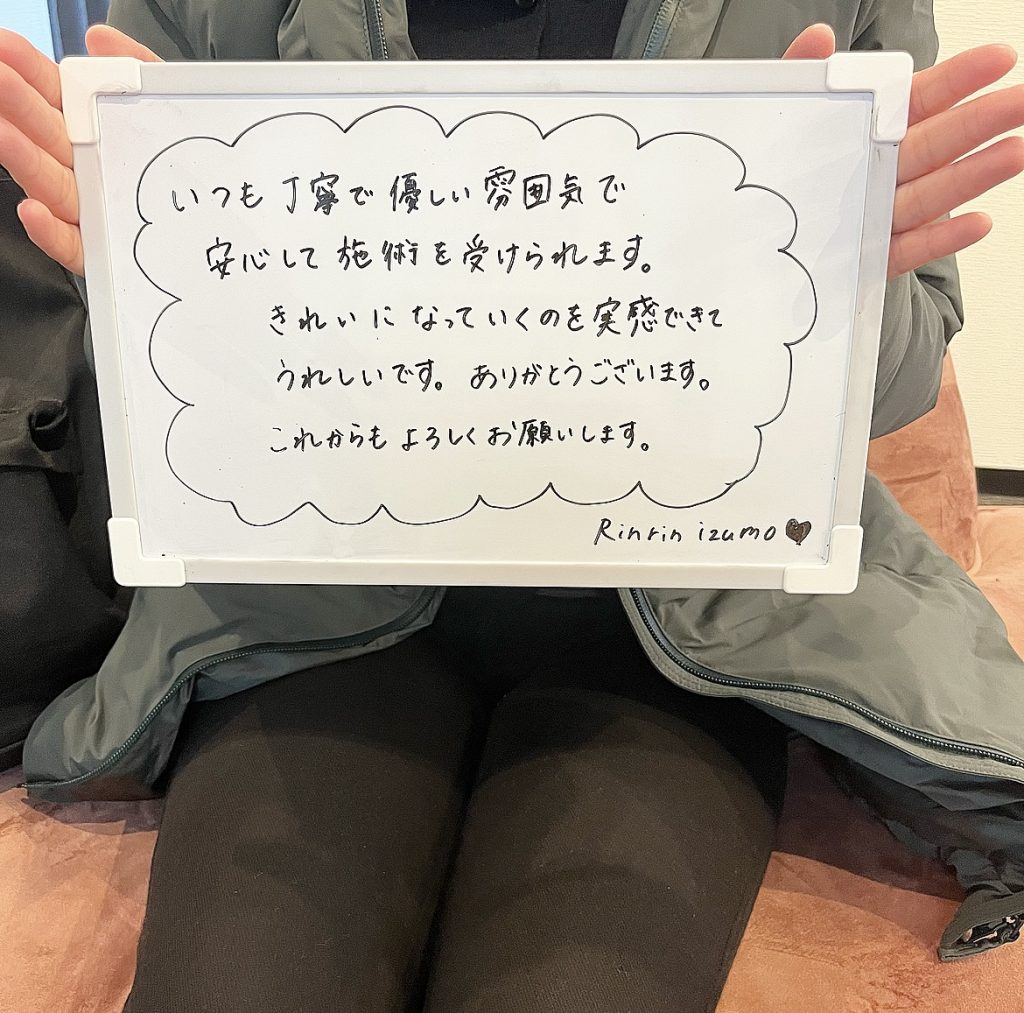 いつも丁寧で優しい雰囲気で
安心して施術を受けられます。
きれいになっていくのを実感できて
うれしいです。ありがとうございます。
これからもよろしくお願いします。
Rinrin izumo♥